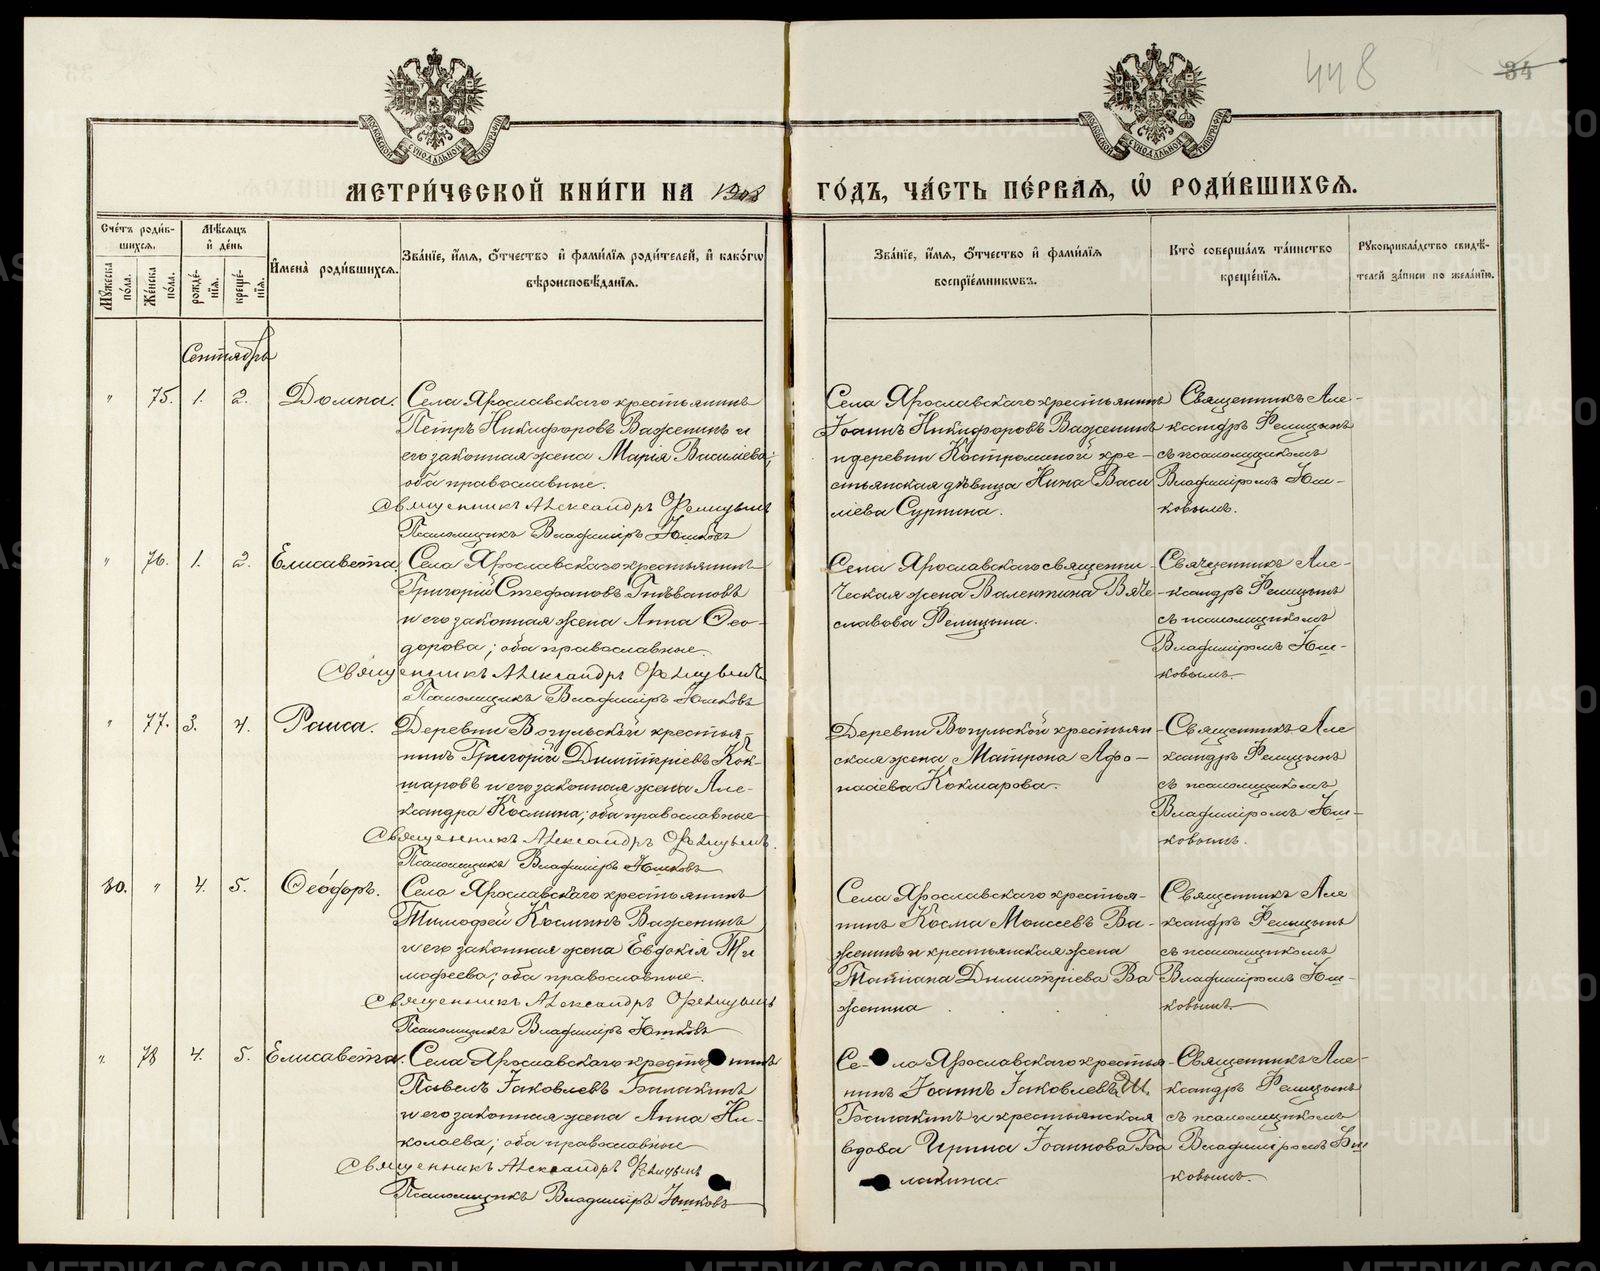 448
34
МОСКОВСКОЙ СѴНОДАЛЬНОЙ ТИПОГРАФІИ
МОСКОВСКОЙ СѴНОДАЛЬНОЙ ТИПОГРАФІИ
МЕТРИ́ЧЕСКОЙ КНИ́ГИ НА 1908 ГО́ДЪ, ЧА́СТЬ ПЕ́РВАѦ, Ѽ РОДИ́ВШИХСѦ.
Сче́тъ роди́в-
шихся.
Мѣсяцъ
и де́нь
Мꙋжеска по́ла.
Же́нска по́ла.
рожде́нїя.
креще́нїя.
И҆мена̀ роди́вшихся.
Зва́нїе, и҆́мя, ѻ҆́тчество и҆ фами́лїя роди́телей, и҆ како́гѡ
вѣроисповѣ́данїя.
Зва́нїе, и҆́мя, ѻ҆́тчество и҆ фами́лїя
воспрїе́мникѡвъ.
Кто̀ соверша́лъ та́инство
креще́нїя.
Рꙋкоприкла́дство свидѣ́-
телей за́писи по жела́нїю.
Сентябрь
" 75. 1. 2. Домна.
Села Ярославскаго крестьянинъ
Петръ Никифоровъ Важенинъ и
его законная жена Марія Василіева;
оба православные.
Священникъ Александръ Фелицынъ
Псаломщикъ Владиміръ Юшковъ
Села Ярославскаго крестьянинъ
Іоаннъ Никифоровъ Важенинъ
и деревни Костроминой кре-
стьянская дѣвица Нина Васи
ліева Сургина.
Священникъ Але-
ксандръ Фелицынъ
съ псаломщикомъ
Владиміромъ Юш-
ковымъ.
" 76. 1. 2. Елисавета
Села Ярославскаго крестьянинъ
Григорій Стефановъ Голѣвановъ
и его законная жена Анна Ѳео-
дорова; оба православные.
Священникъ Александръ Фелицынъ
Псаломщикъ Владиміръ Юшковъ
Села Ярославскаго священни-
ческая жена Валентина Вяче-
славова Фелицына.
Священникъ Але-
ксандръ Фелицынъ
съ псаломщикомъ
Владиміромъ Юш-
ковымъ.
" 77. 3. 4. Раиса.
Деревни Вогульской крестья-
нинъ Григорій Димитріевъ Кок-
шаровъ и его законная жена Але-
ксандра Космина; оба православные
Священникъ Александръ Фелицынъ.
Псаломщикъ Владиміръ Юшковъ
Деревни Вогульской крестьян-
ская жена Матрона Афо-
насіева Кокшарова.
Священникъ Але
ксандръ Фелицынъ
съ псаломщикомъ
Владиміромъ Юш-
ковымъ.
30. " 4. 5. Ѳеодоръ.
Села Ярославскаго крестьянинъ
Тимофей Косминъ Важенинъ
и его законная жена Евдокія Ти
мофеева; оба православные.
Священникъ Александръ Фелицынъ
Псаломщикъ Владиміръ Юшковъ
Села Ярославскаго крестья-
нинъ Косма Моисеевъ Ва-
женинъ и крестьянская жена
Татіана Димитріева Ва
женина
Священникъ Але
ксандръ Фелицынъ
съ псаломщикомъ
Владиміромъ Юш-
ковымъ.
" 78 4. 5. Елисавета.
Села Ярославскаго крестьянинъ
Павелъ Іаковлевъ Балакинъ
и его законная жена Анна Ни-
колаева; оба православные
Священникъ Александръ Фелицынъ
Псаломщикъ Владиміръ Юшковъ
Се-ла Ярославскаго крестья-
нинъ Іоаннъ Іаковлевъ
Балакинъ и крестьянская
вдова Ирина Іоаннова Ба
лакина.
Священникъ Але-
ксандръ Фелицынъ
съ псаломщикомъ
Владиміромъ Юш
ковымъ.
METRIKI.GASO-URAL.RU